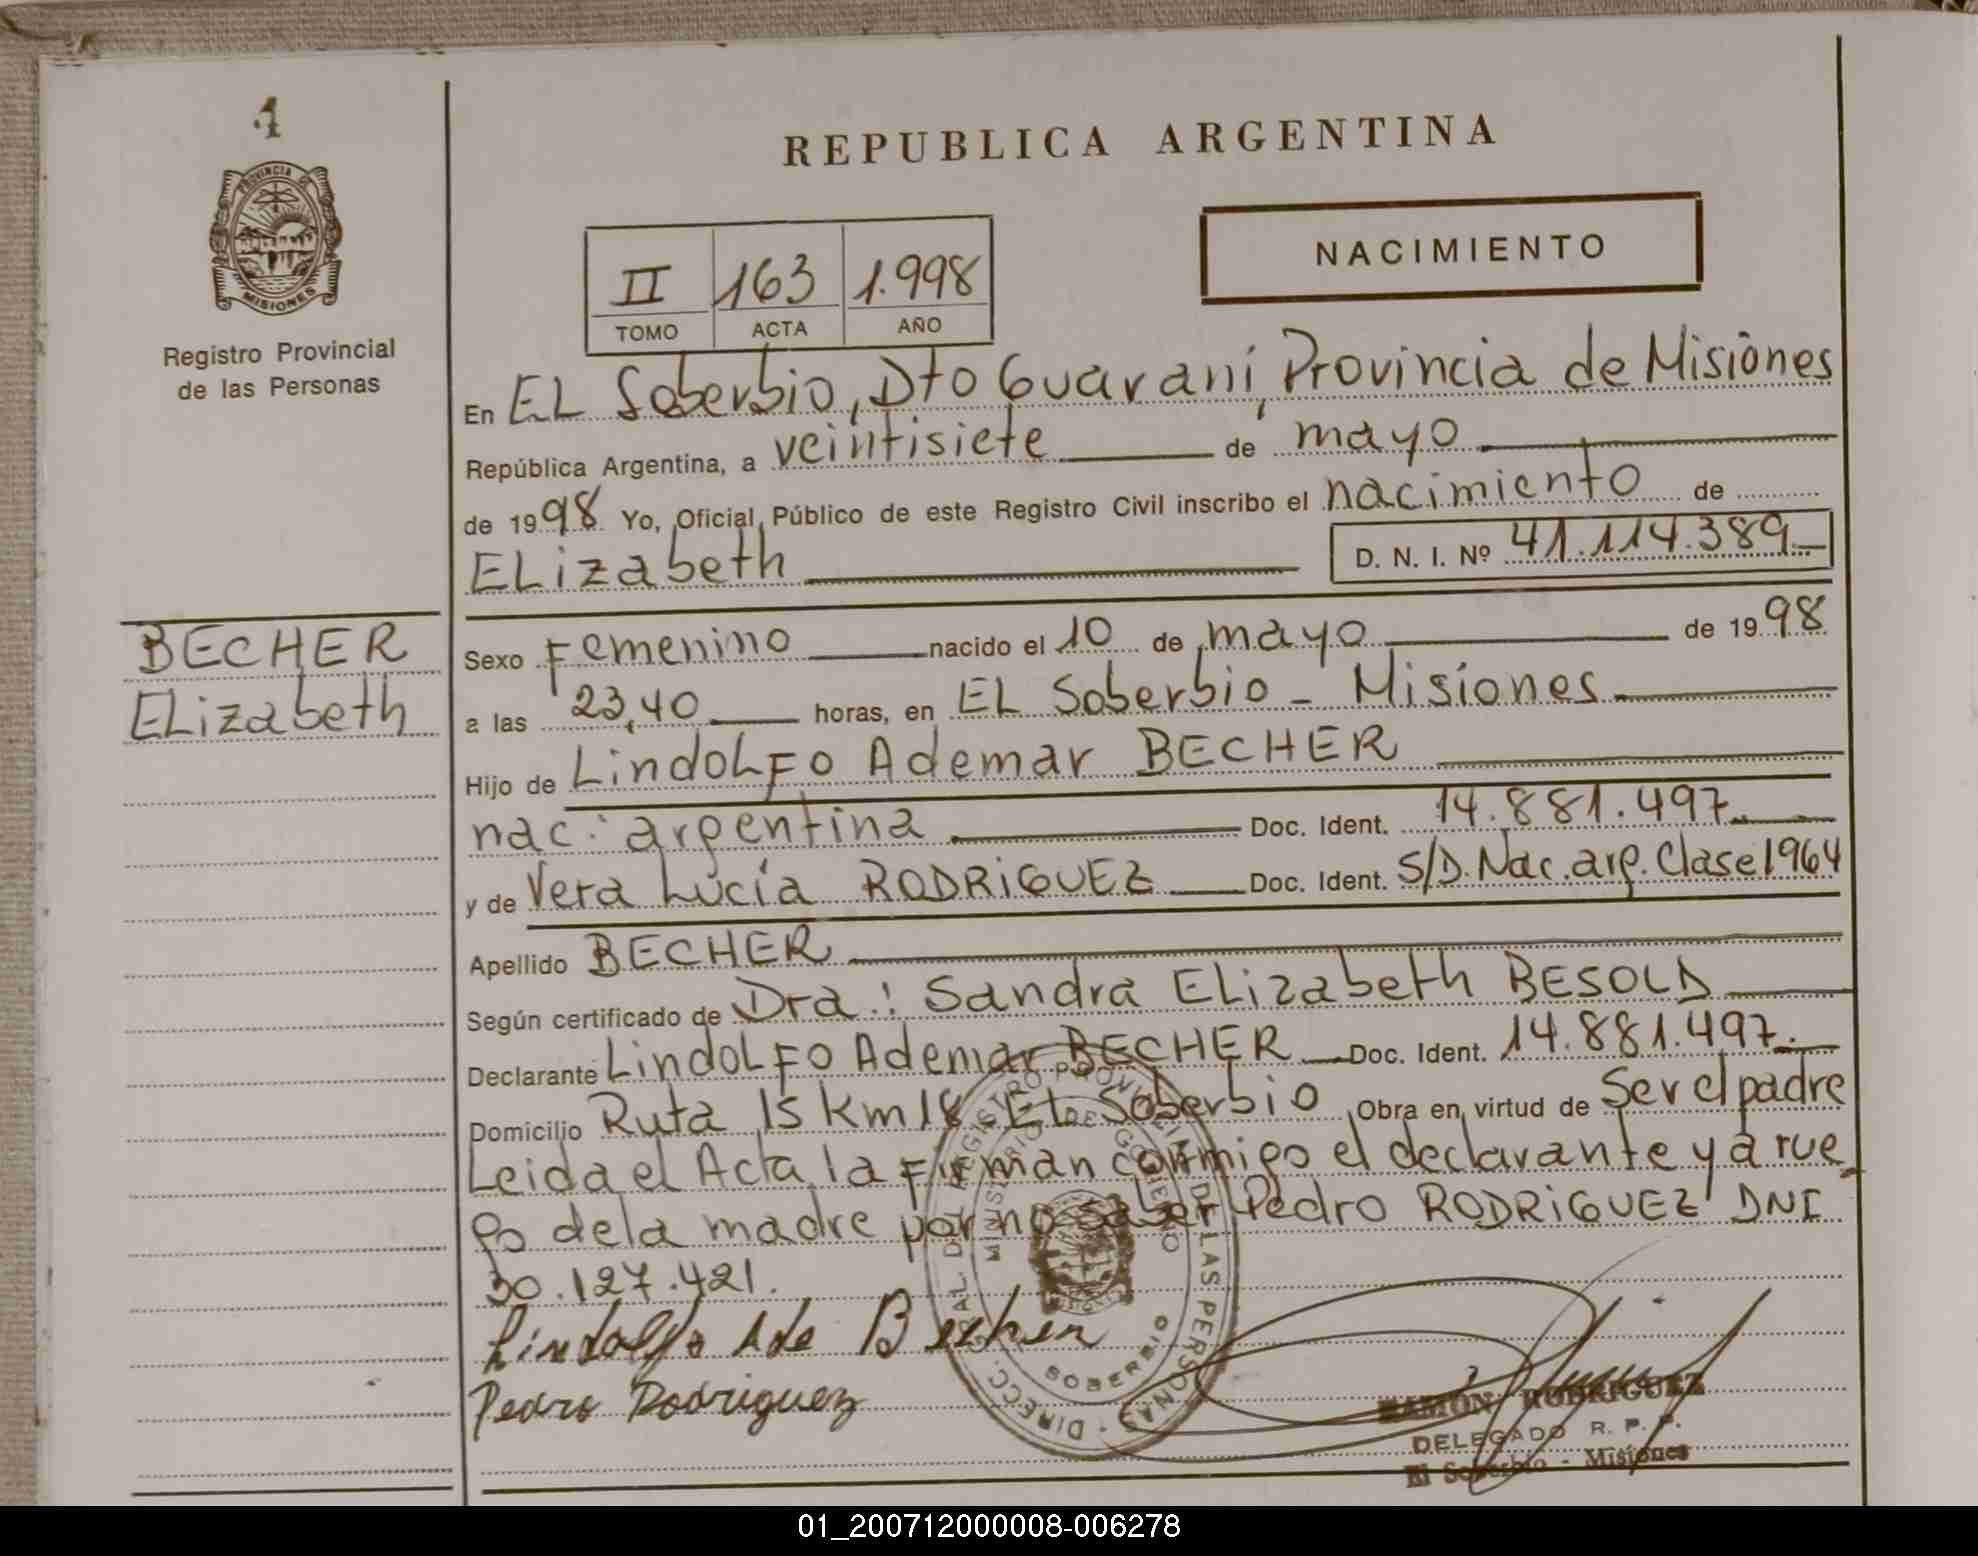 1
PROVINCIA DE
MISIONES
Registro Provincial
de las Personas
BECHER
ELizabeth
REPUBLICA ARGENTINA
NACIMIENTO
II 163 1.998
TOMO ACTA AÑO
En EL Soberbio, Dto Guaraní, Provincia de Misiones
República Argentina, a veintisiete de mayo
de 1998 Yo, Oficial Público de este Registro Civil inscribo el nacimiento de
ELizabeth D. N. I. Nº 41.114.389
Sexo Femenino nacido el 10 de mayo de 1998
a las 23,40 horas, en EL Soberbio - Misiones
Hijo de LindoLFo Ademar BECHER
nac: argentina Doc. Ident. 14.881.497
y de Vera Lucía RODRiGUEZ Doc. Ident. S/D. Nac. arg. Clase 1964
Apellido BECHER
Según certificado de Dra.: Sandra ELizabeth BESOLD
Declarante LindoLFo Ademar BECHER Doc. Ident. 14.881.497.
Domicilio Ruta 15 km 18 EL Soberbio Obra en virtud de Ser el padre
Leida el Acta la Firman conmigo el declarante y a rue
go de la madre por no saber Pedro RODRiGUEZ DNI
30.127.421.
Lindolfo Ade Becher
Pedro Rodriguez
DIRECC. GRAL. DEL REGISTRO PROVINCIAL DE LAS PERSONAS
MINISTERIO DE GOBIERNO
SOBERBIO
RAMON RODRIGUEZ
DELEGADO R. P. P.
El Soberbio - Misiones
01_200712000008-006278